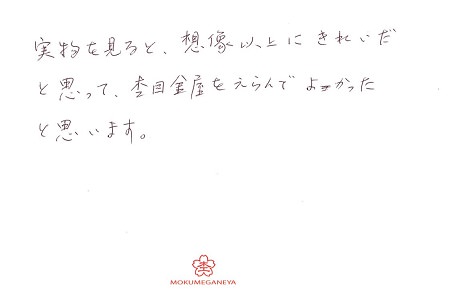 実物を見ると、想像以上にきれいだ
と思って、杢目金屋をえらんでよかった
と思います。
杢
MOKUMEGANEYA